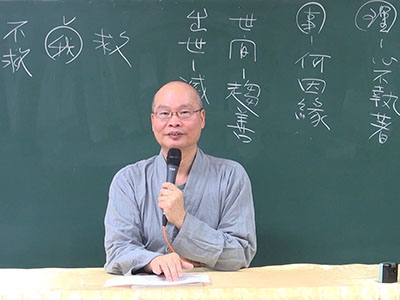 理－心不執著
事－何因緣
世間－趨善
出世－滅
救
我
不救